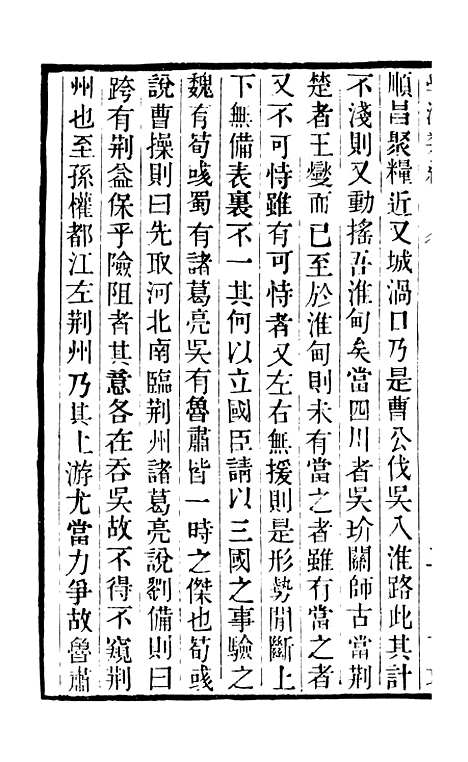 順昌聚糧近又城渦口乃是曹公伐吳入淮路此其計
不淺則又動搖吾淮甸矣當四川者吳玠關師古當荆
楚者王燮而已至於淮甸則未有當之者雖有當之者
又不可恃雖有可恃者又左右無援則是形勢間斷上
下無備表裏不一其何以立國臣請以三國之事驗之
魏有荀彧蜀有諸葛亮吳有魯肅皆一時之傑也荀彧
說曹操則曰先取河北南臨荆州諸葛亮說劉備則曰
跨有荆益保乎險阻者其意各在吞吳故不得不窺荆
州也至孫權都江左荆州乃其上游尤當力爭故魯肅